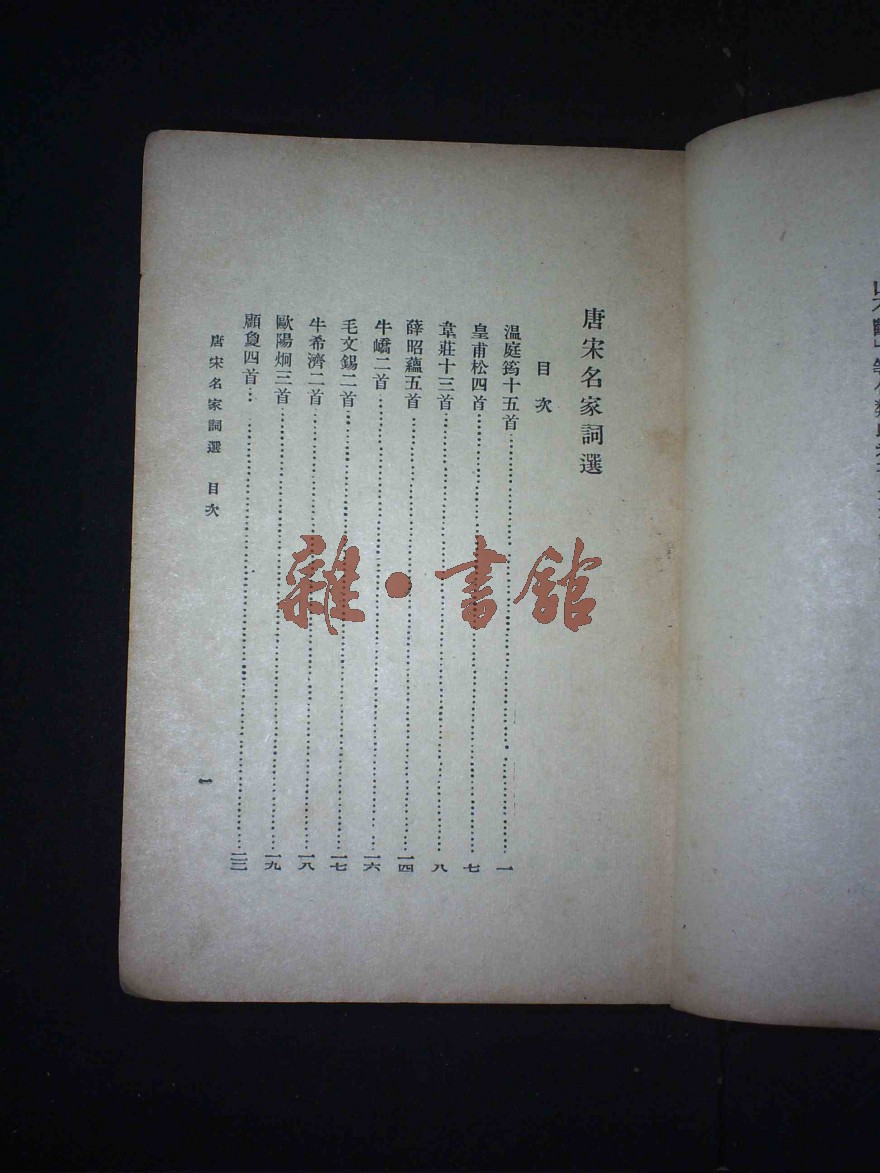 唐宋名家詞選
目次
温庭筠十五首……一
皇甫松四首……七
韋莊十三首……八
薛昭蘊五首……一四
牛嶠二首……一六
毛文錫二首……一七
牛希濟二首……一八
歐陽炯三首……一九
顧敻四首……二二
唐宋名家詞選 目次
一
雜·書館